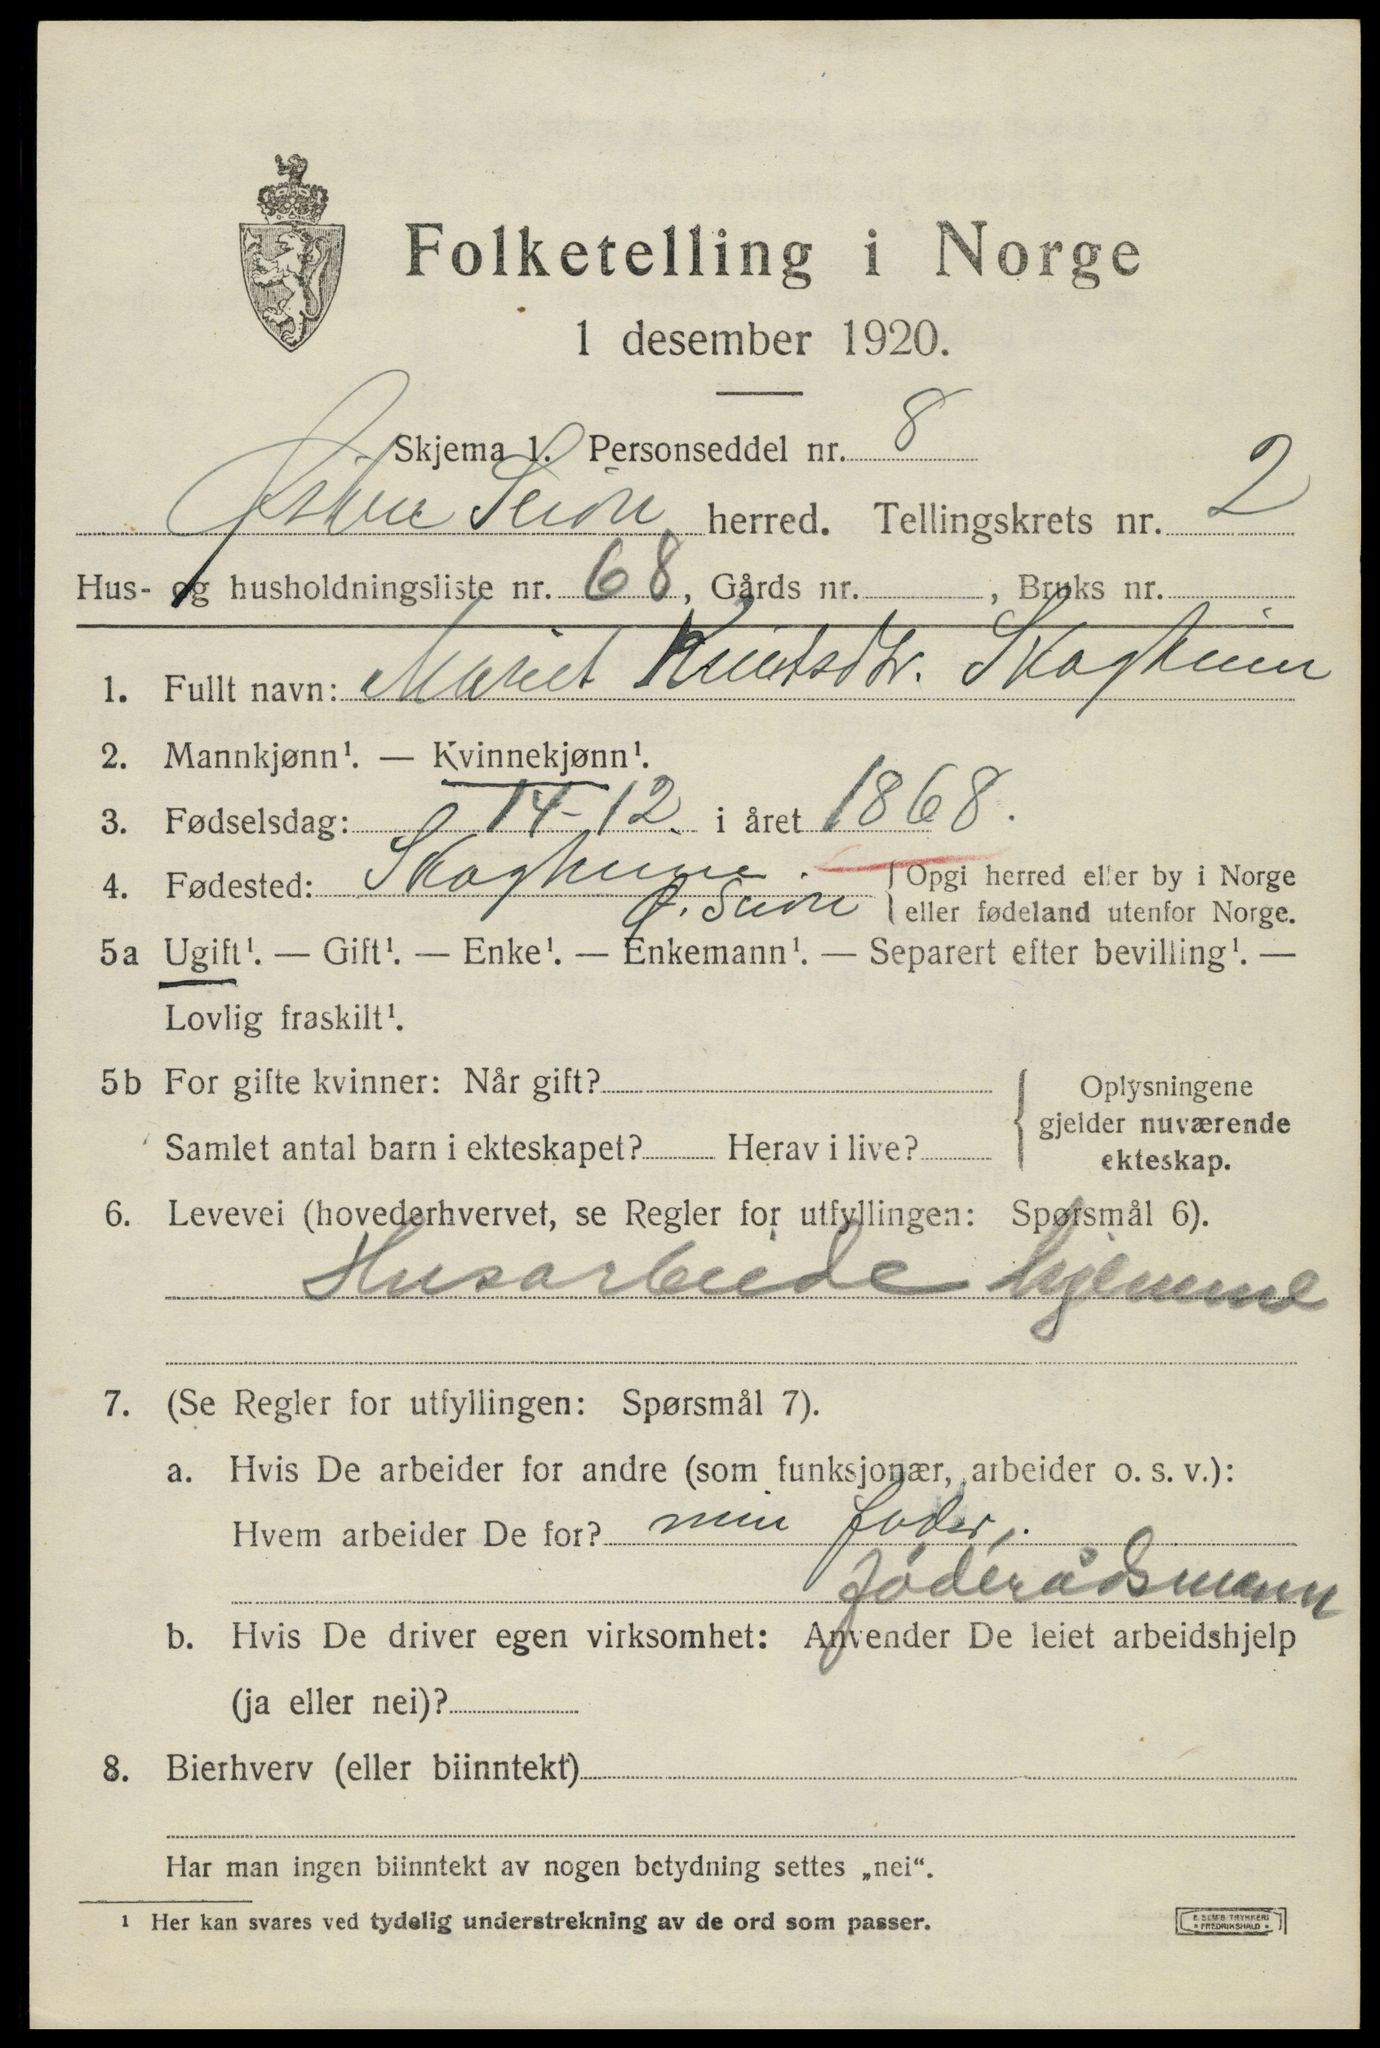 Folketelling i Norge
1 desember 1920.
Skjema 1. Personseddel nr. 8
Østre Slidre herred. Tellingskrets nr. 2
Hus- og husholdningsliste nr. 68, Gårds nr. , Bruks nr.
1. Fullt navn: Marit Knutsdtr. Skaghuim
2. Mannkjønn¹. — Kvinnekjønn¹.
3. Fødselsdag: 14-12. i året 1868.
4. Fødested: {Opgi herred eller by i Norge
Ø. eller fødeland utenfor Norge.
5a Ugift¹. — Gift¹. — Enke¹. — Enkemann¹. — Separert efter bevilling¹. —
Lovlig fraskilt¹.
5b For gifte kvinner: Når gift? Oplysningene
gjelder nuværende
Samlet antal barn i ekteskapet? Herav i live? ekteskap.
6. Levevei (hovederhvervet, se Regler for utfyllingen: Spørsmål 6).
Husarbeide hjemme
7. (Se Regler for utfyllingen: Spørsmål 7).
a. Hvis De arbeider for andre (som funksjonær, arbeider o. s. v.):
Hvem arbeider De for? min fader,
føderådsmann
b. Hvis De driver egen virksomhet: Anvender De leiet arbeidshjelp
(ja eller nei)?
8. Bierhverv (eller biinntekt)
Har man ingen biinntekt av nogen betydning settes „nei“.
¹ Her kan svares ved tydelig understrekning av de ord som passer.
E. SEMS TRYKKERI
FREDRIKSHALD